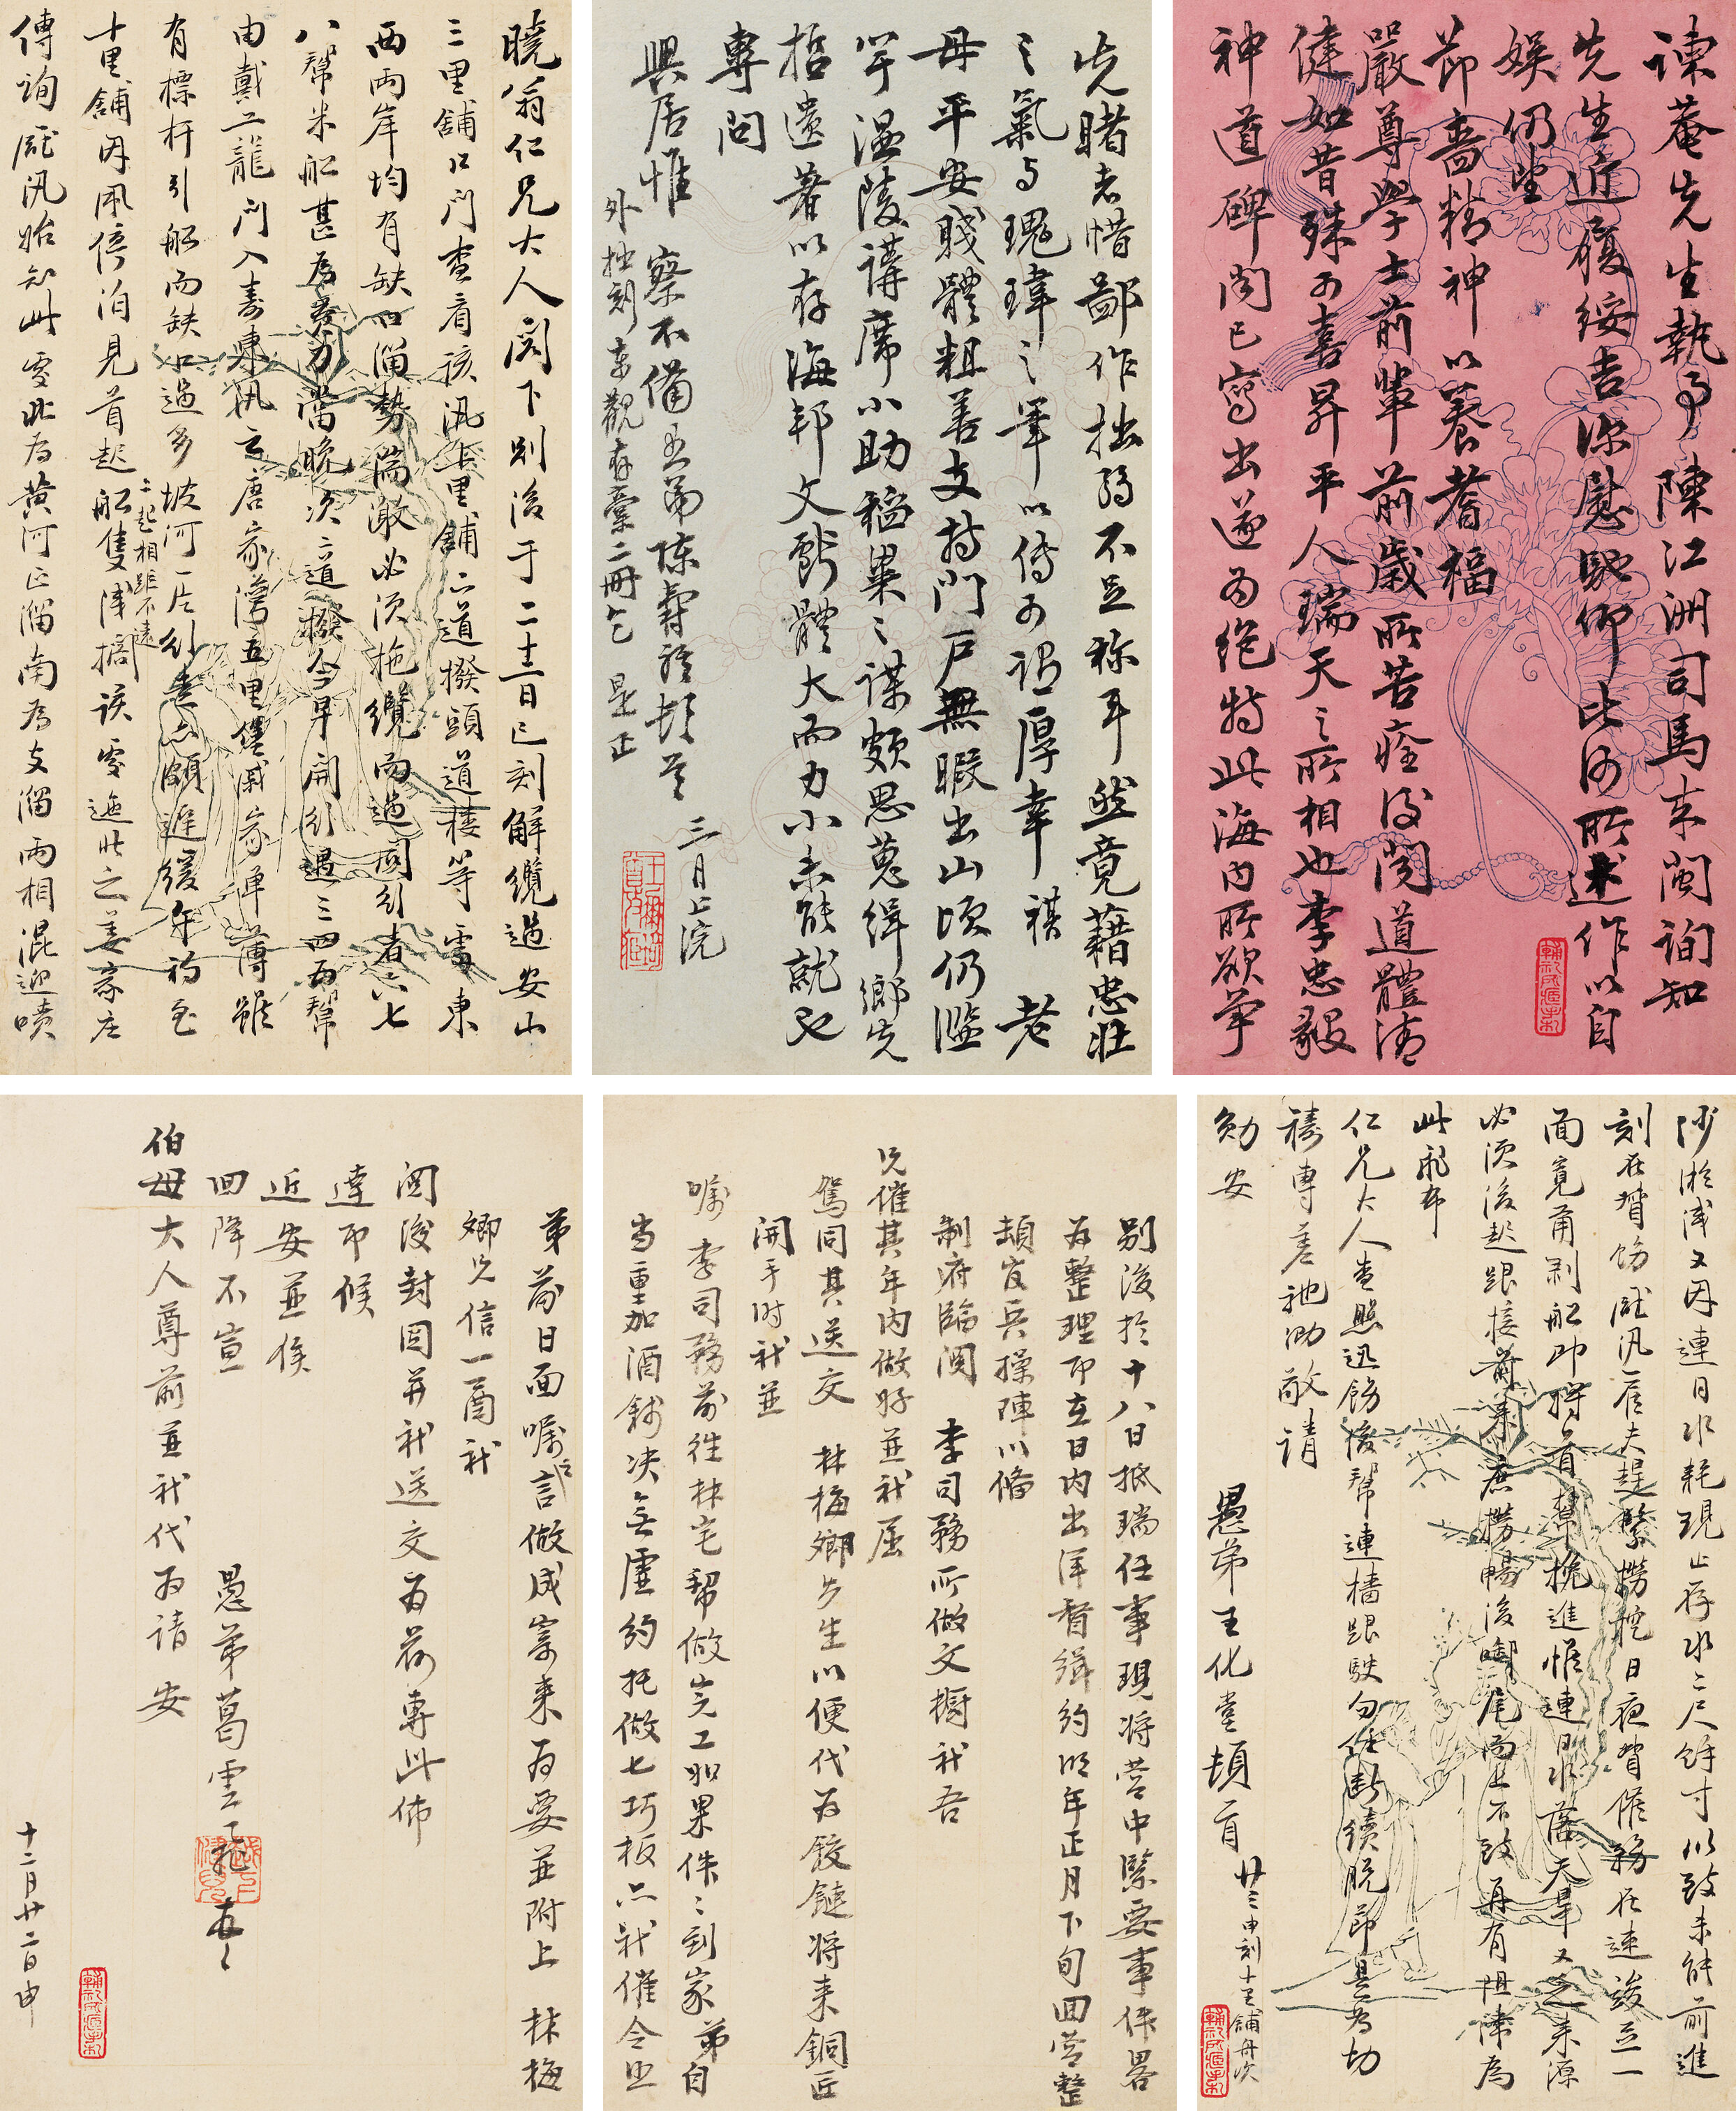 諫菴先生執事 陳江洲司馬來閩詢知
先生近履綏吉深慰馳仰比何所述作以自
娛仍望
節嗇精神以養耆福
嚴尊學士前輩前歲所苦痊後閱道體清
健如昔殊可喜昇平人瑞天之所相也李忠毅
神道碑聞已寫出遂為絕特此海內所欲爭
先睹者惜鄙作拙弱不足稱耳然竟藉忠壯
之氣與瑰瑋之筆以傳可謂厚幸祺 老
母平安賤體粗善支持門戶無暇出山頃仍濫
竽溫陵講席小助稻粱之謀頗思蒐緝鄉先
哲遺著以存海邦文獻體大而力小未能就也
專問
興居惟 察不備 愚弟陳壽祺頓首 三月上浣
外拙刻東觀存稾二冊乞 是正
曉翁仁兄大人閣下別後于二十二日巳刻解纜過安山
三里舖口門查看該汛十里舖六道撥頭道棧等處東
西兩岸均有缺口溜勢湍激必須拖纜而過因行者六七
八幫米船甚為費力當晚次二道撥今早開行過三四兩幫
由戴二龍門入壽東汛之唐家灣五里堡戚家單薄雖
有標杆引船而缺口過多坡河一片行走亦頗遲緩午初至
十里舖因風停泊見首起二起相距不遠船隻該處迤北之姜家庄
傳詢汛始知此處北為黃河正溜南為支溜兩相混迎噴
沙淤淺又因連日水耗現止存水二尺餘寸以致未能前進
刻在督飭汛官夫趕緊撈挖日夜督催務在速竣立一
面竟用剝船即將首幫挽進惟連日水落天旱又乏來源
必須後起跟接前來庶撈暢後啣尾而上不致再有阻滯為
此飛布
仁兄大人查照迅飭後幫連檣跟駛勿任斷續脫節是為切
禱專差馳泐敬請
勛安 愚弟王化堂頓首 廿三申刻十里舖舟次
別後於十八日抵瑞任事現將營中緊要事件畧
為整理即在日內出洋督緝約明年正月下旬回營整
頓官兵操陣以備
制府臨閱 李司務所做文櫥祈吾
兄催其年內做好並祈屈
駕同其送交 林梅卿先生以便代為鉸鏈將來銅匠
開手時祈並
囑李司務前往林宅幫做完工如果件件到家弟自
當重加酒錢決無虛約托做七巧板亦祈催令即
弟前日面囑言做成寄來為要並附上 林梅
卿兄信一函祈
閱後封固并祈送交為荷專此佈
達即候
近安並候
回降不宣 愚弟葛雲飛
伯母大人尊前並祈代為請安
十二月廿二日申